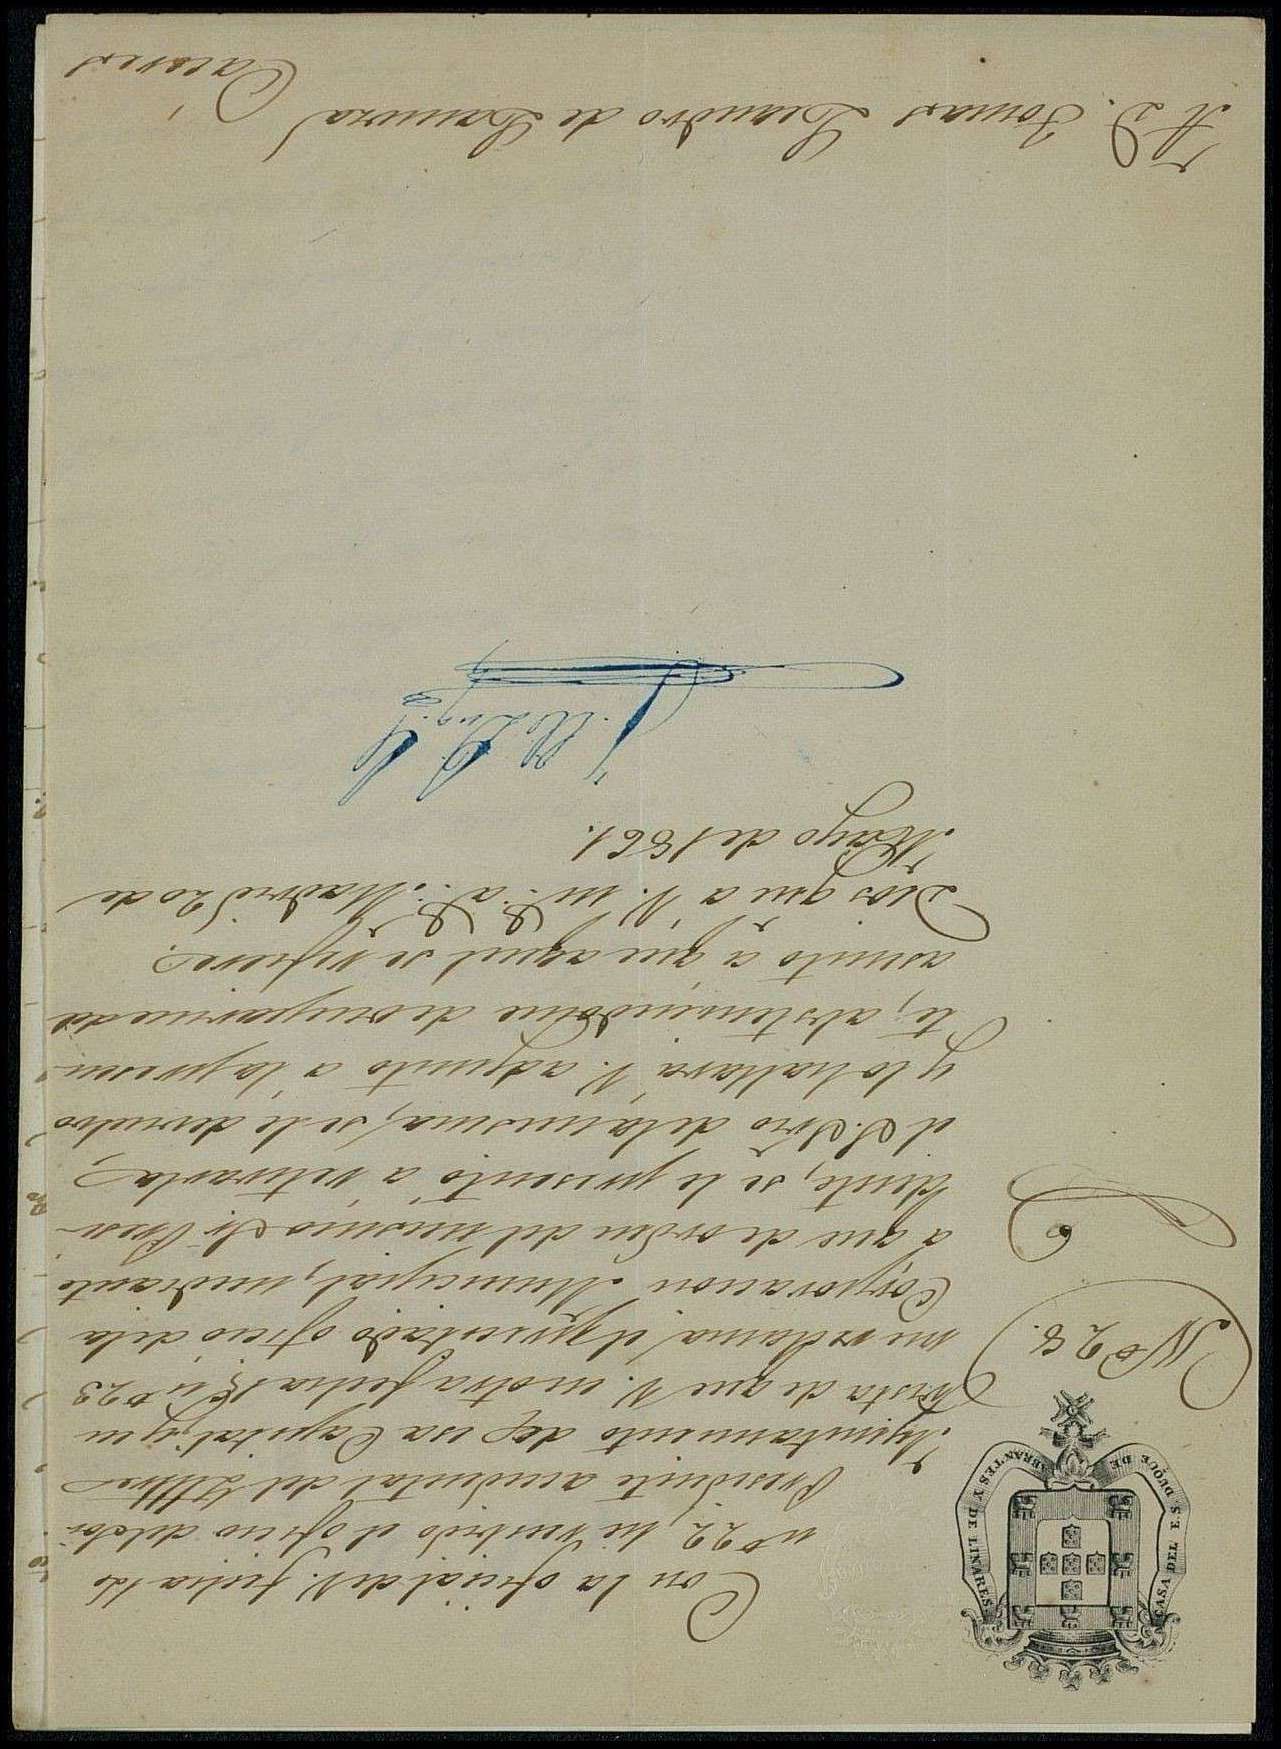 CASA DEL E.S. DUQUE DE ABRANTES Y DE LINARES
Nº 28.
Con la oficial de V. fecha 16
nº 22, he recibido el oficio del Sor
Presidente accidental del Ylltre
Ayuntamiento de esa Capital, y en
vista de que V. en otra fecha 18 nº 23
me reclama el presentado oficio de la
Corporacion Municipal, mediante
a que de orden del mismo Sr. Presi-
dente, se le presentó a retirarla
el S.Srio de la misma, se le devuelvo
y lo hallará V. adjunto a la presen-
te, absteniendome de ocuparme del
asunto a que aquel se refiere.
Dios gue a V. m. a. Madrid 20 de
Mayo de 1861.
A D. Tomas Leandro de Lamora
Caceres